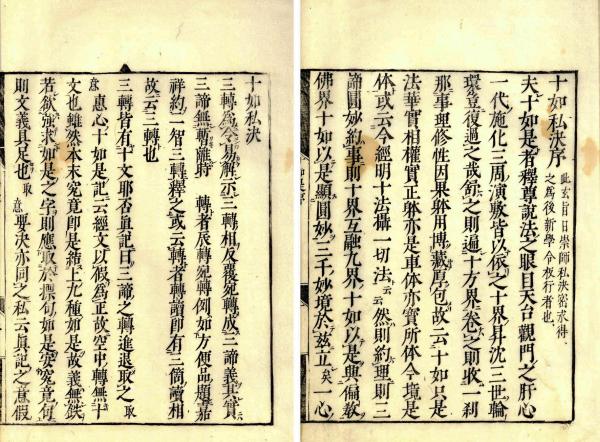 十如私決序
此玄旨日崇師私決密求得
之為後新學令夜行者也
夫十如是者釋尊說法之眼目天台觀門之肝心
一代施化三周演敷皆以依之十界昇沈三世輪
環豈復過之哉舒之則遍十方界卷之則收一刹
那事理修性因果躰用博藏原包故云十如只是
法華實相權實正躰亦是車体亦實所体今境是
体或云今經明十法攝一切法云云然則約理則三
諦圓妙約事則十界互融九界十如以是與偏數
佛界十如以是顯圓妙三千妙境於茲立矣一心
十如私決
三轉爲令易解示三轉相反覆宛轉成三諦義其實
三諦無暫離時 轉者辰轉宛轉例如方便品題嘉
祥約二智三轉釋之或云轉者轉讀即有三箇讀相
故云三轉也
三轉皆有十文耶否眞記曰三諦之轉進退取之取
意惠心十如是記云經文以假爲正故空中轉無十
文也雖然本末究竟即是結上九種如是故義無缺
若欲強求如是之字則應取於標句如是究竟句
則文義具足也取意要決亦同之私云眞記之意假